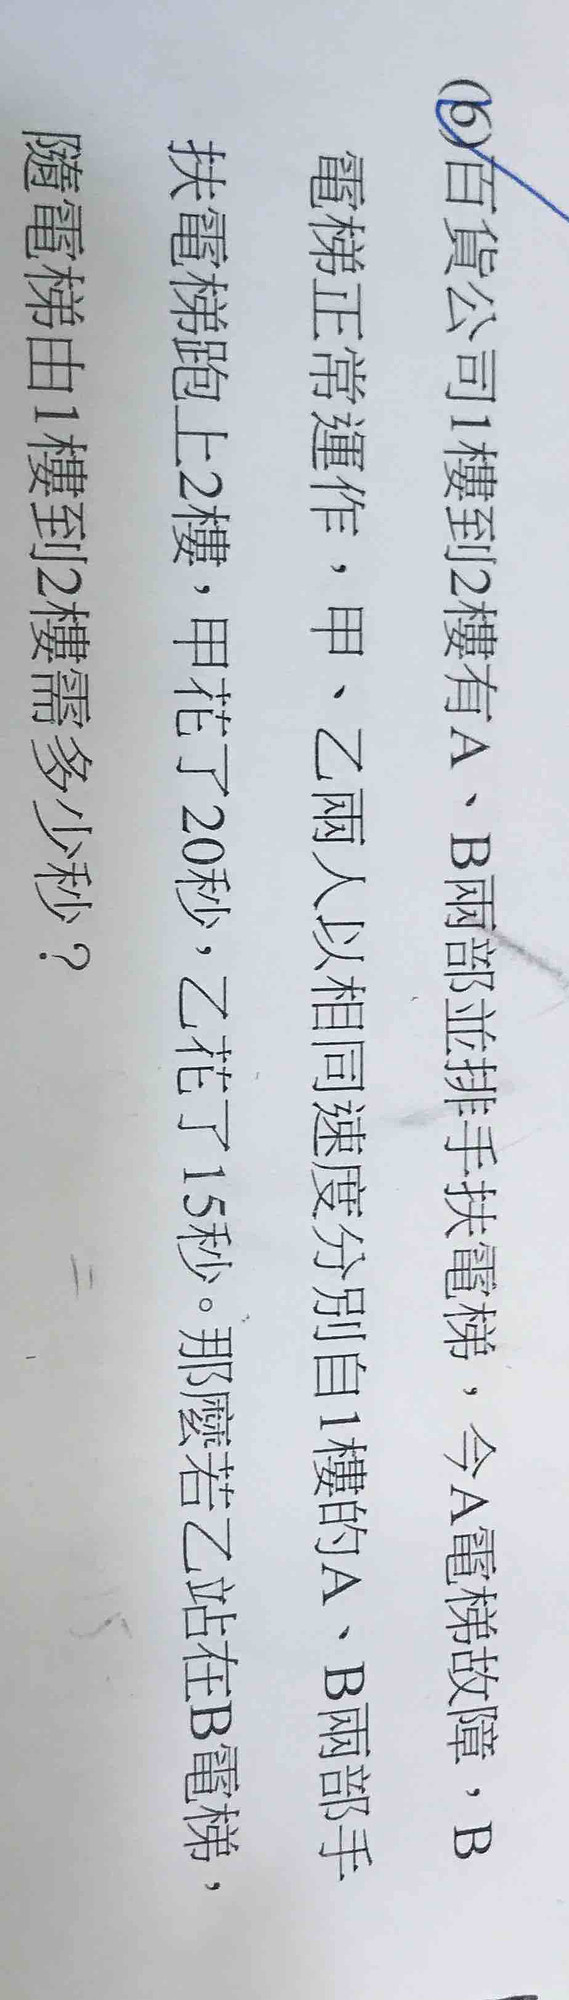 (6)百貨公司1樓到2樓有A、B兩部並排手扶電梯，今A電梯故障，B
電梯正常運作，甲、乙兩人以相同速度分別自1樓的A、B兩部手
扶電梯跑上2樓，甲花了20秒，乙花了15秒。那麼若乙站在B電梯，
隨電梯由1樓到2樓需多少秒？